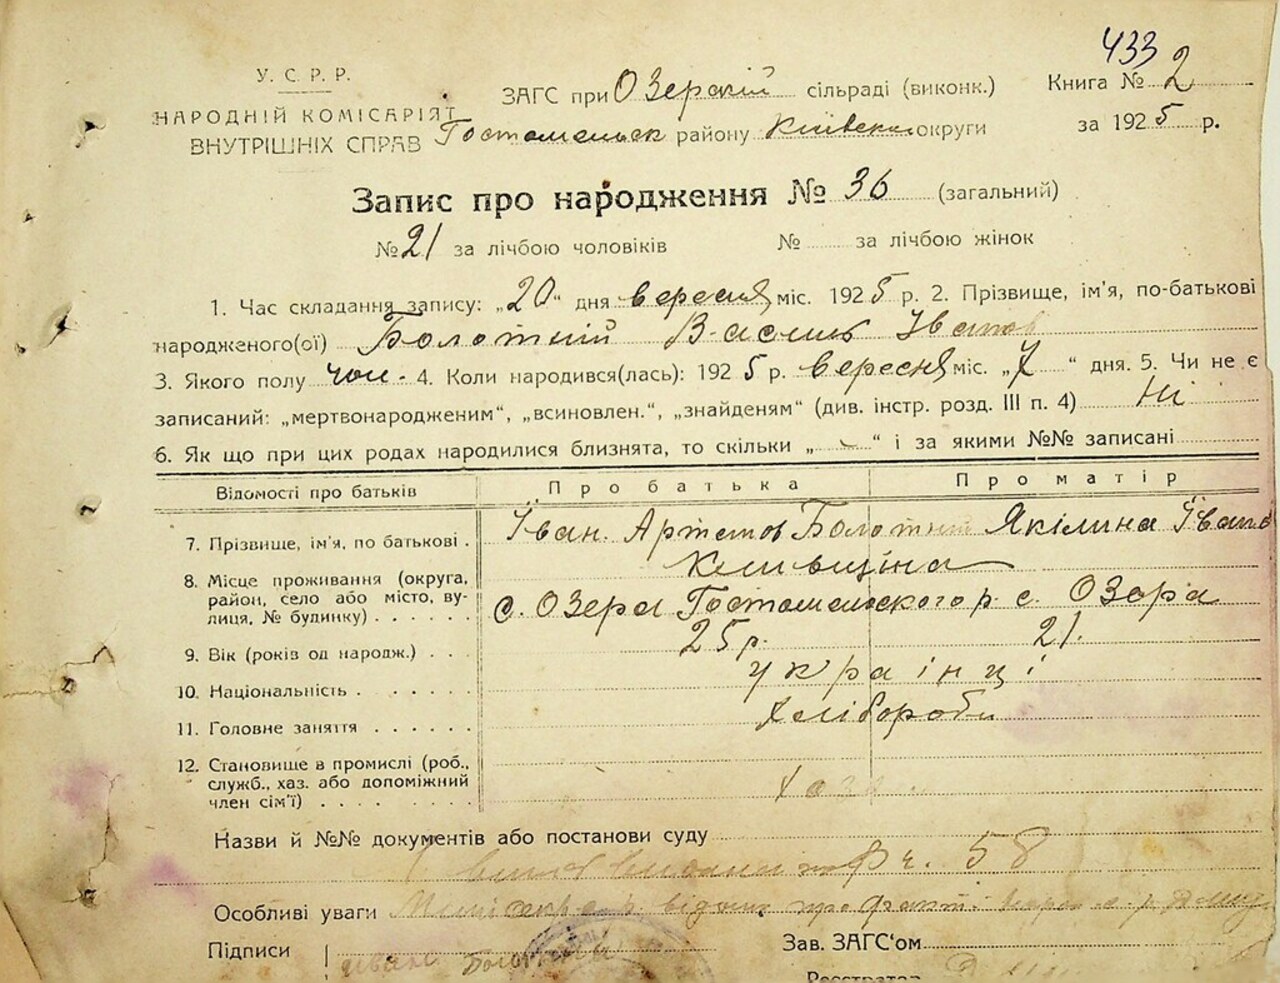 433
У. С. Р. Р.
НАРОДНІЙ КОМІСАРІЯТ
ВНУТРІШНІХ СПРАВ
ЗАГС при Озерській сільраді (виконк.)
Гостомельск району Київськ округи
Книга № 2
за 1925 р.
Запис про народження № 36 (загальний)
№ 21 за лічбою чоловіків № за лічбою жінок
1. Час складання запису: „20" дня вересня міс. 1925 р. 2. Прізвище, ім'я, по-батькові
народженого(ої) Болотний Василь Іванов
3. Якого полу чол. 4. Коли народився(лась): 1925 р. вересня міс. „7" дня. 5. Чи не є
записаний: „мертвонародженим", „всиновлен.", „знайденям" (див. інстр. розд. III п. 4) Ні
6. Як що при цих родах народилися близнята, то скільки „-" і за якими №№ записані
Відомості про батьків Про батька Про матір
7. Прізвище, ім'я, по батькові . Їван. Артемов Болотний Якілина Їванов
8. Місце проживання (округа, район, село або місто, вулиця, № будинку) . . . . . .
с. Озера Гостомельского р. с. Озора
9. Вік (років од народж.) . . . 25 р. 21.
10. Національність . . . . . . . українці
11. Головне заняття . . . . . . Хлібороби
12. Становище в промислі (роб., служб., хаз. або допоміжний член сім'ї) . . . . . . .
Назви й №№ документів або постанови суду
ф ч. 58
Особливі уваги
Підписи Иван Болотний
Зав. ЗАГС'ом
Реєстратор